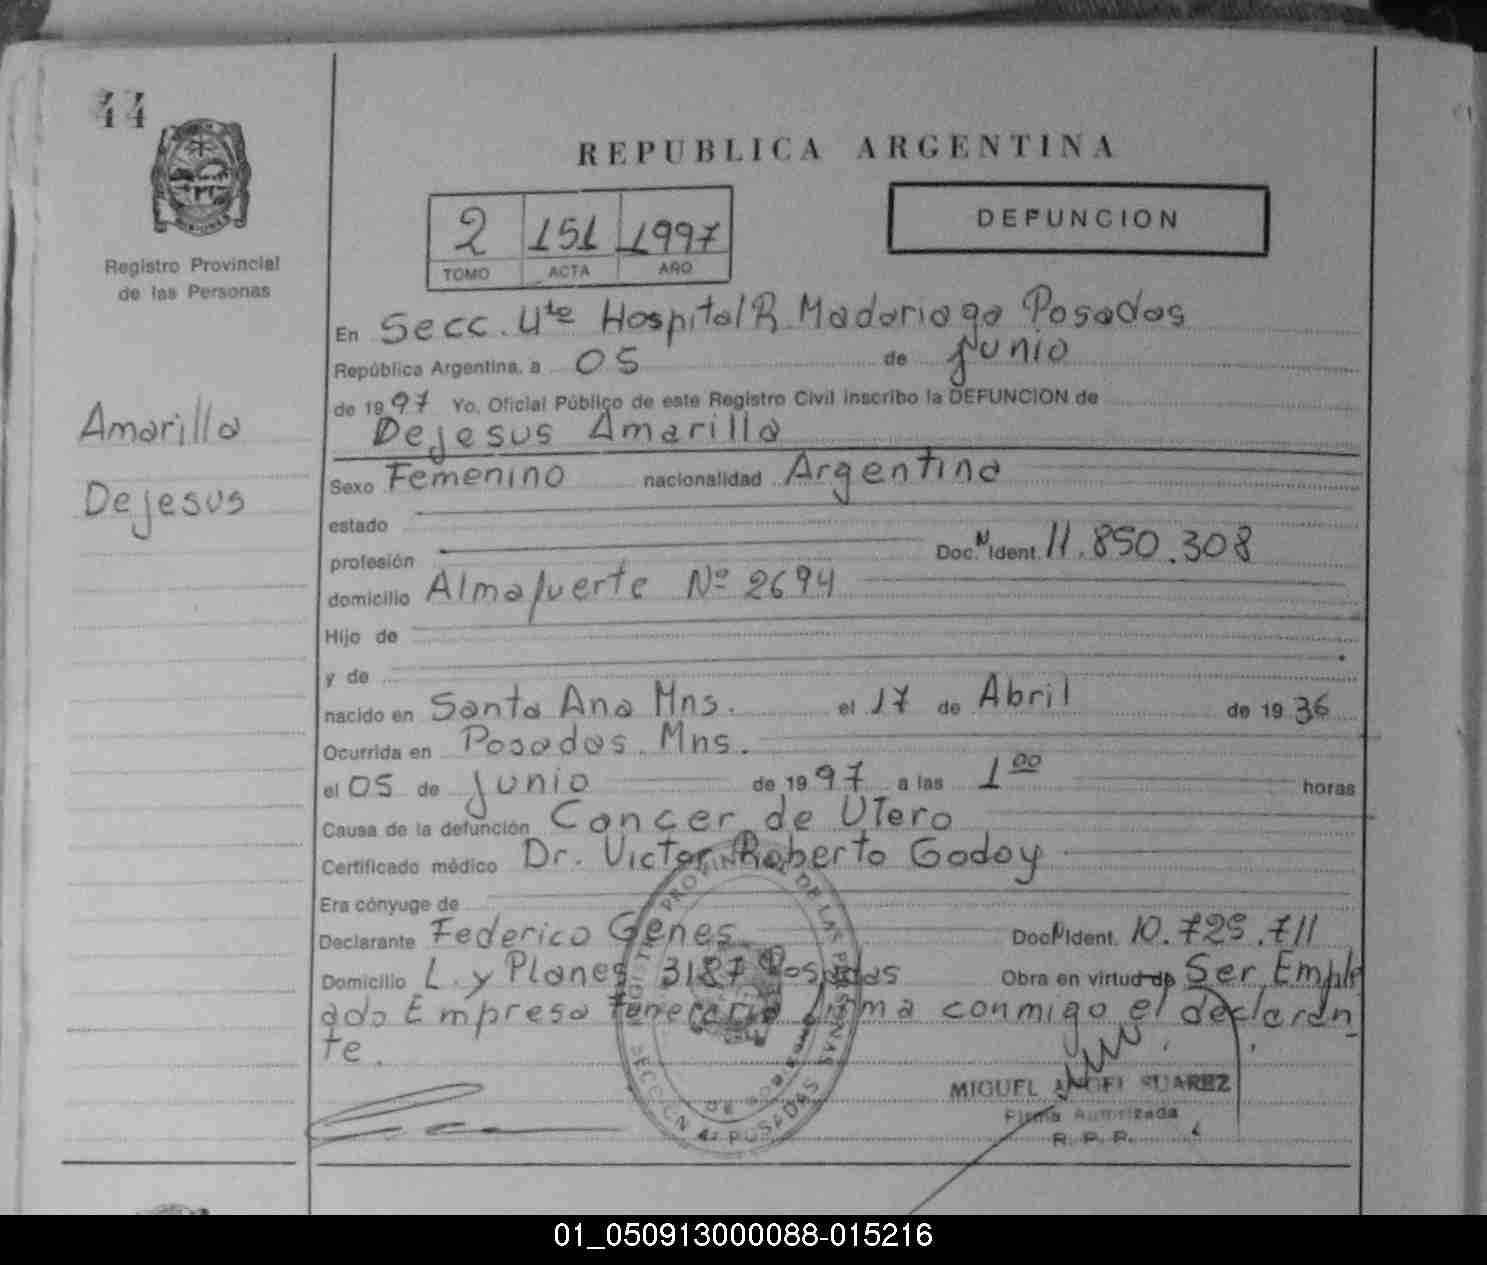 44
Registro Provincial
de las Personas
Amarilla
Dejesus
REPUBLICA ARGENTINA
2 151 1997
TOMO ACTA AÑO
DEFUNCION
En Secc. 4te Hospital R. Madariaga Posadas
República Argentina, a 05 de junio
de 1997 Yo, Oficial Público de este Registro Civil inscribo la DEFUNCION de
Dejesus Amarilla
Sexo Femenino nacionalidad Argentina
estado
profesión Doc. N Ident. 11.850.308
domicilio Almafuerte Nº 2694
Hijo de
y de
nacido en Santa Ana Mns. el 17 de Abril de 1936
Ocurrida en Posadas. Mns.
el 05 de junio de 1997 a las 1 00 horas
Causa de la defunción Cancer de Utero
Certificado médico Dr. Victor Roberto Godoy
Era cónyuge de
Declarante Federico Genes Doc N Ident. 10.729.711
Domicilio L. y Planes 3187 Posadas Obra en virtud de Ser Emple
ado Empresa Funeraria firma conmigo el declaran
te.
REGISTRO PROVINCIAL DE LAS PERSONAS
SECCION 4a POSADAS
MIGUEL ANGEL SUAREZ
Firma Autorizada
R. P. P.
01_050913000088-015216